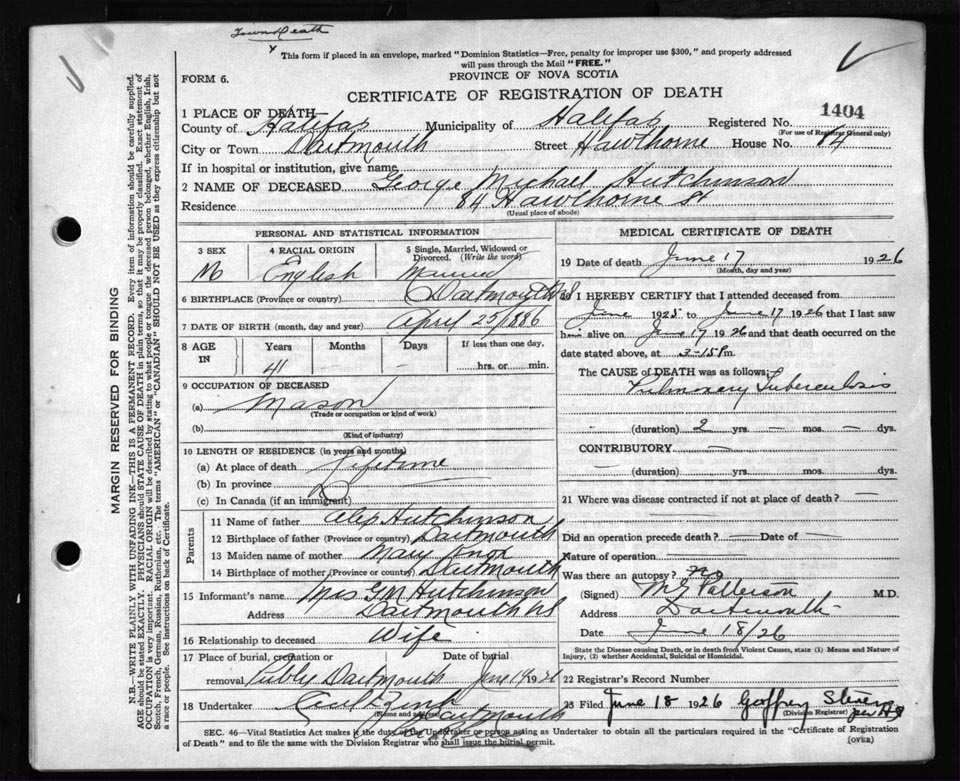 Town Death
This form if placed in an envelope, marked "Dominion Statistics—Free, penalty for improper use $300," and properly addressed
will pass through the Mail "FREE."
FORM 6.
PROVINCE OF NOVA SCOTIA
CERTIFICATE OF REGISTRATION OF DEATH
1404
1 PLACE OF DEATH
County of Halifax Municipality of Halifax Registered No.
(For use of Registrar General only)
City or Town Dartmouth Street Hawthorne House No. 84
If in hospital or institution, give name
2 NAME OF DECEASED George Michael Hutchinson
Residence 84 Hawthorne St
(Usual place of abode)
PERSONAL AND STATISTICAL INFORMATION
3 SEX M
4 RACIAL ORIGIN English
5 Single, Married, Widowed or Divorced. (Write the word) Married
6 BIRTHPLACE (Province or country) Dartmouth NS
7 DATE OF BIRTH (month, day and year) April 25/1886
8 AGE IN Years Months Days If less than one day,
41 — — hrs. or min.
9 OCCUPATION OF DECEASED
(a) Mason
(Trade or occupation or kind of work)
(b)
(Kind of industry)
10 LENGTH OF RESIDENCE (in years and months)
(a) At place of death Lifetime
(b) In province
(c) In Canada (if an immigrant)
Parents
11 Name of father Alex Hutchinson
12 Birthplace of father (Province or country) Dartmouth
13 Maiden name of mother Mary
14 Birthplace of mother (Province or country) Dartmouth
15 Informant's name Mrs G M Hutchinson
Address Dartmouth NS
16 Relationship to deceased Wife
17 Place of burial, cremation or Date of burial
removal Public Dartmouth June 19 1926
18 Undertaker
(Name and address) Dartmouth
MEDICAL CERTIFICATE OF DEATH
19 Date of death June 17 1926
(Month, day and year)
20 I HEREBY CERTIFY that I attended deceased from
June 1925 to June 17 1926 that I last saw
him alive on June 17 1926 and that death occurred on the
date stated above, at 3-15 P.m.
The CAUSE OF DEATH was as follows:
Pulmonary Tuberculosis
(duration) 2 yrs. — mos. — dys.
CONTRIBUTORY —
— (duration) yrs. mos. dys.
21 Where was disease contracted if not at place of death? —
Did an operation precede death? — Date of —
Nature of operation —
Was there an autopsy? no
(Signed) M.G. Patterson M.D.
Address Dartmouth
Date June 18/26
State the Disease causing Death, or in death from Violent Causes, state (1) Means and Nature of
Injury, (2) whether Accidental, Suicidal or Homicidal.
22 Registrar's Record Number
23 Filed June 18 1926 Geoffrey
(Division Registrar)
SEC. 46—Vital Statistics Act makes it the duty of the Undertaker or person acting as Undertaker to obtain all the particulars required in the "Certificate of Registration
of Death" and to file the same with the Division Registrar who shall issue the burial permit.
(OVER)
MARGIN RESERVED FOR BINDING
N.B.—WRITE PLAINLY WITH UNFADING INK—THIS IS A PERMANENT RECORD. Every item of information should be carefully supplied.
AGE should be stated EXACTLY. PHYSICIANS should STATE CAUSE OF DEATH in plain terms, so that it may be properly classified. Exact statement of
OCCUPATION is very important. RACIAL ORIGIN will be described by stating to what people or tongue the deceased person belonged, whether English, Irish,
Scotch, French, German, Russian, Ruthenian, etc. The terms "AMERICAN" or "CANADIAN" SHOULD NOT BE USED as they express citizenship but not
a race or people. See instructions on back of Certificate.